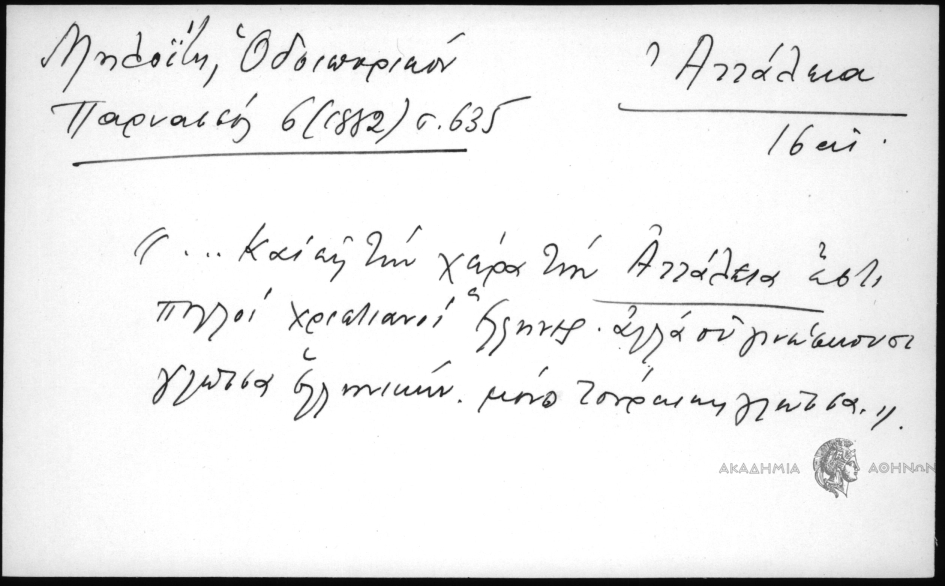 Μηλοΐτη, Ὁδοιπορικόν
Παρνασσός 6 (1882) σ. 635
Ἀττάλεια
16 αἰ.
"... Καί εἰς τήν χώρα τήν Ἀττάλεια ἐστι
πολλοί χριστιανοί Ἕλληνες. ἀλλά οὐ γινώσκουσι
γλῶσσα ἑλληνικήν. μόνο τούρκικη γλῶσσα."
ΑΚΑΔΗΜΙΑ ΑΘΗΝΩΝ